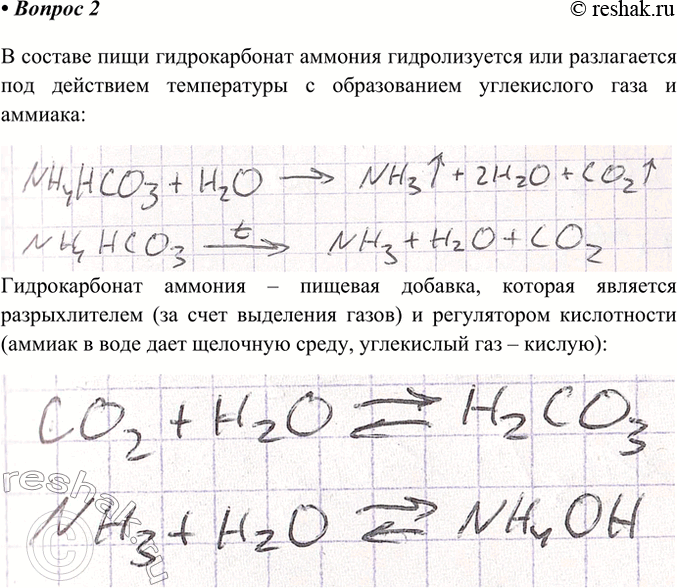 • Вопрос 2
© reshak.ru
В составе пищи гидрокарбонат аммония гидролизуется или разлагается
под действием температуры с образованием углекислого газа и
аммиака:
NH4HCO3 + H2O → NH3↑ + 2H2O + CO2↑
NH4HCO3 —t→ NH3 + H2O + CO2
Гидрокарбонат аммония – пищевая добавка, которая является
разрыхлителем (за счет выделения газов) и регулятором кислотности
(аммиак в воде дает щелочную среду, углекислый газ – кислую):
CO2 + H2O ⇄ H2CO3
NH3 + H2O ⇄ NH4OH